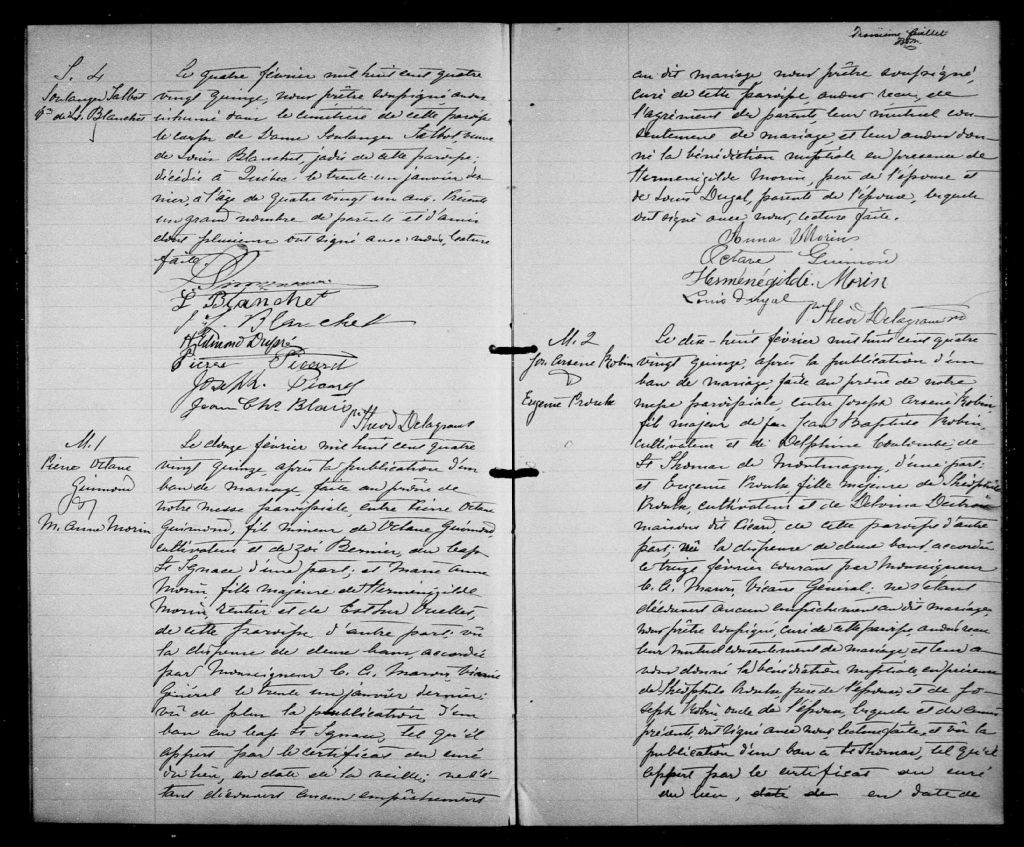 S. 4
Soulanges Talbot
Ve de Ls. Blanchet
Le quatre février mil huit cent quatre
vingt quinze, nous prêtre soussigné avons
inhumé dans le cimetière de cette paroisse
le corps de Dame Soulanges Talbot, veuve
de Louis Blanchet, jadis de cette paroisse,
décédée à Québec le trente-un janvier der-
nier, à l'âge de quatre vingt un ans. Présents
un grand nombre de parents et d'amis
dont plusieurs ont signé avec nous, lecture
faite.
L. Blanchet
J. Blanchet
H. Edmond Dupré
Pierre Picard
Joseph Picard
Jean Chs Blais
ptre Théod Delagrave
M. 1
Pierre Octave
Guimond
&
M. Anne Morin
Le douze février mil huit cent quatre
vingt quinze après la publication d'un
ban de mariage, faite au prône de
notre messe paroissiale, entre Pierre Octave
Guimond, fils mineur de Octave Guimond,
cultivateur et de Zoé Bernier, du Cap-
St Ignace d'une part; et Marie Anne
Morin, fille majeure de Herménégilde
Morin, rentier et de Esther Ouellet,
de cette paroisse d'autre part; vû
la dispense de deux bans, accordée
par Monseigneur C. A. Marois Vicaire
Général le trente un janvier dernier
vû de plus la publication d'un
ban au Cap St Ignace, tel qu'il
appert par le certificat du curé
du lieu, en date de la veille; ne s'é-
tant découvert aucun empêchement
Troisième feuillet
au dit mariage, nous prêtre soussigné,
curé de cette paroisse, avons reçu, de
l'agrément des parents, leur mutuel con-
sentement de mariage, et leur avons don-
né la bénédiction nuptiale en présence de
Herménégilde Morin, père de l'épouse et
de Louis Dugal, parents de l'époux, lesquels
ont signé avec nous, lecture faite.
Anna Morin
Octave Guimond
Herménégilde. Morin
Louis Dugal
ptre Théod Delagrave
M. 2
Jos. Arsène Robin
&
Eugénie Proulx
Le dix-huit février mil huit cent quatre
vingt quinze, après la publication d'un
ban de mariage, faite au prône de notre
messe paroissiale, entre Joseph Arsène Robin
fils majeur de feu Jean Baptiste Robin,
cultivateur et de Delphine Coulombe, de
St Thomas de Montmagny, d'une part;
et Eugénie Proulx fille majeure de Théophile
Proulx, cultivateur et de Delvina Destrois-
maisons dit Picard, de cette paroisse d'autre
part; vû la dispense de deux bans accordée
le treize février courant par Monseigneur
C. A. Marois, Vicaire Général; ne s'étant
découvert aucun empêchement au dit mariage,
nous prêtre soussigné, curé de cette paroisse, avons reçu
leur mutuel consentement de mariage et leur a-
vons donné la bénédiction nuptiale, en présence
de Théophile Proulx, père de l'épouse, et de Jo-
seph Robin oncle de l'époux, lesquels et de
présents ont signé avec nous lecture faite, et vû la
publication d'un ban à St Thomas, tel qu'il
appert par le certificat du curé
du lieu, date de en date de